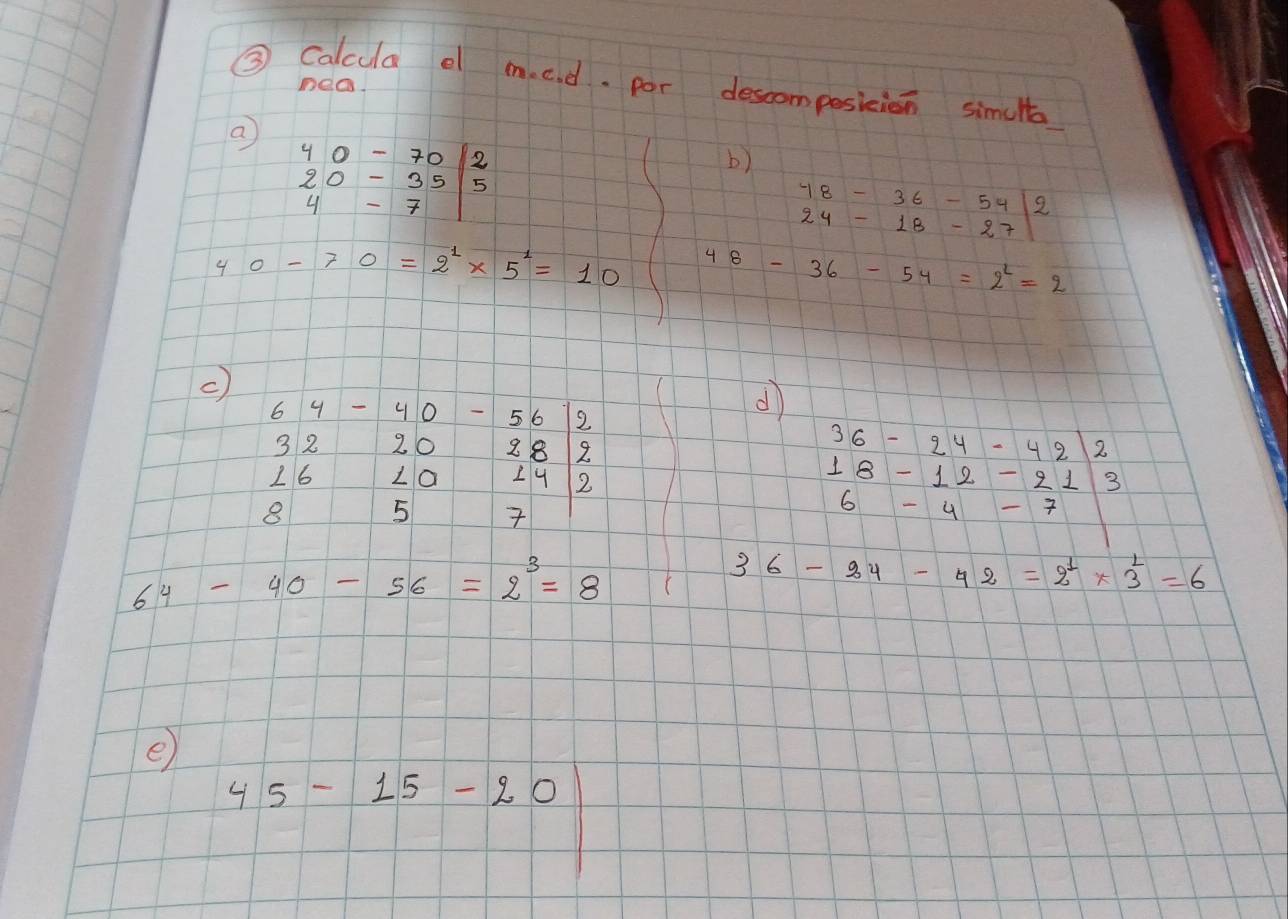 ③ Calcula el m.c.d. por descomposición simultá_
nea.
a)
40 - 70 | 2
20 - 35 | 5
4 - 7
40 - 70 = 2¹ × 5¹ = 10
b)
48 - 36 - 54 | 2
24 - 18 - 27
48 - 36 - 54 = 2¹ = 2
c)
64 - 40 - 56 | 2
32 20 28 | 2
16 10 14 | 2
8 5 7
64 - 40 - 56 = 2³ = 8
d)
36 - 24 - 42 | 2
18 - 12 - 21 | 3
6 - 4 - 7
36 - 24 - 42 = 2¹ × 3¹ = 6
e)
45 - 15 - 20 |